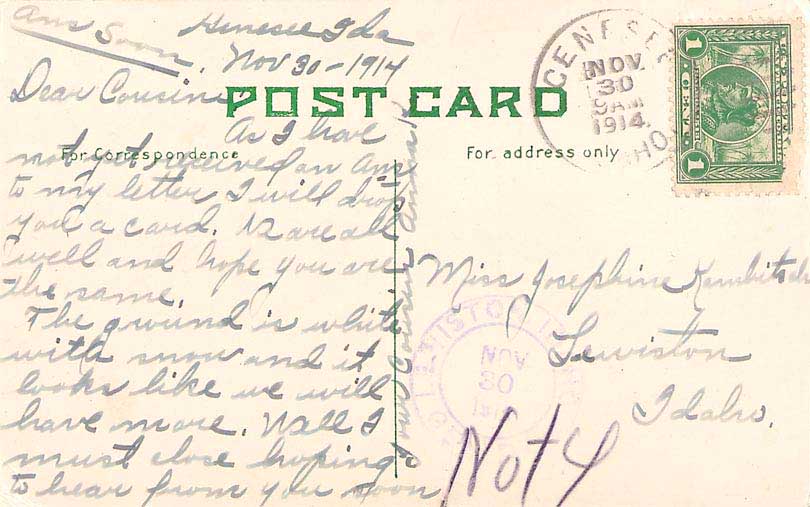 Ans Soon
Genesee Ida
Nov 30-1914
Dear Cousin
POST CARD
For Correspondence
For address only
As I have
not yet received an Ans
to my letter I will drop
you a card. We are all
well and hope you are
the same.
The ground is white
with snow and it
looks like we will
have more. Well I
must close hoping
to hear from you soon
your Cousin
Miss Josephine
Lewiston
Idaho.
Not 4
GENESEE
NOV
30
9 AM
1914
IDAHO
LEWISTON
NOV
30
1
1